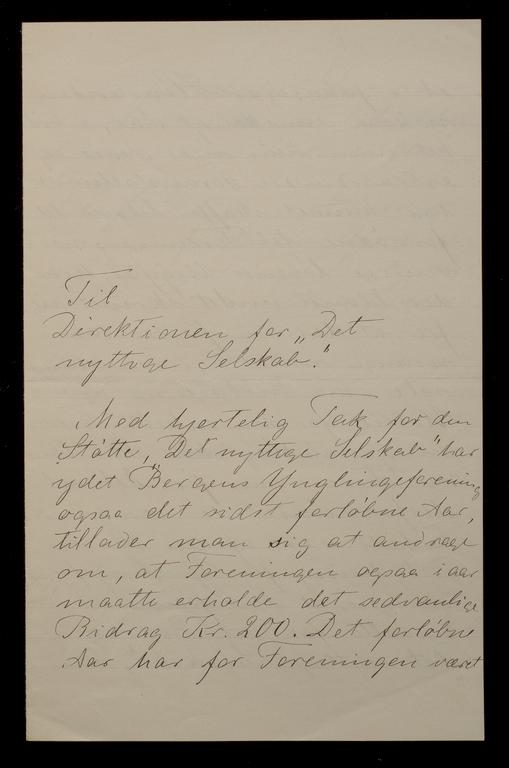 Til
Direktionen for „Det
nyttige Selskab.“
Med hjertelig Tak for den
Støtte, „Det nyttige Selskab“ har
ydet Bergens Ynglingeforening
ogsaa det sidst forløbne Aar,
tillader man sig at andrage
om, at Foreningen ogsaa i aar
maatte erholde det sedvanlige
Bidrag Kr. 200. Det forløbne
Aar har for Foreningen været